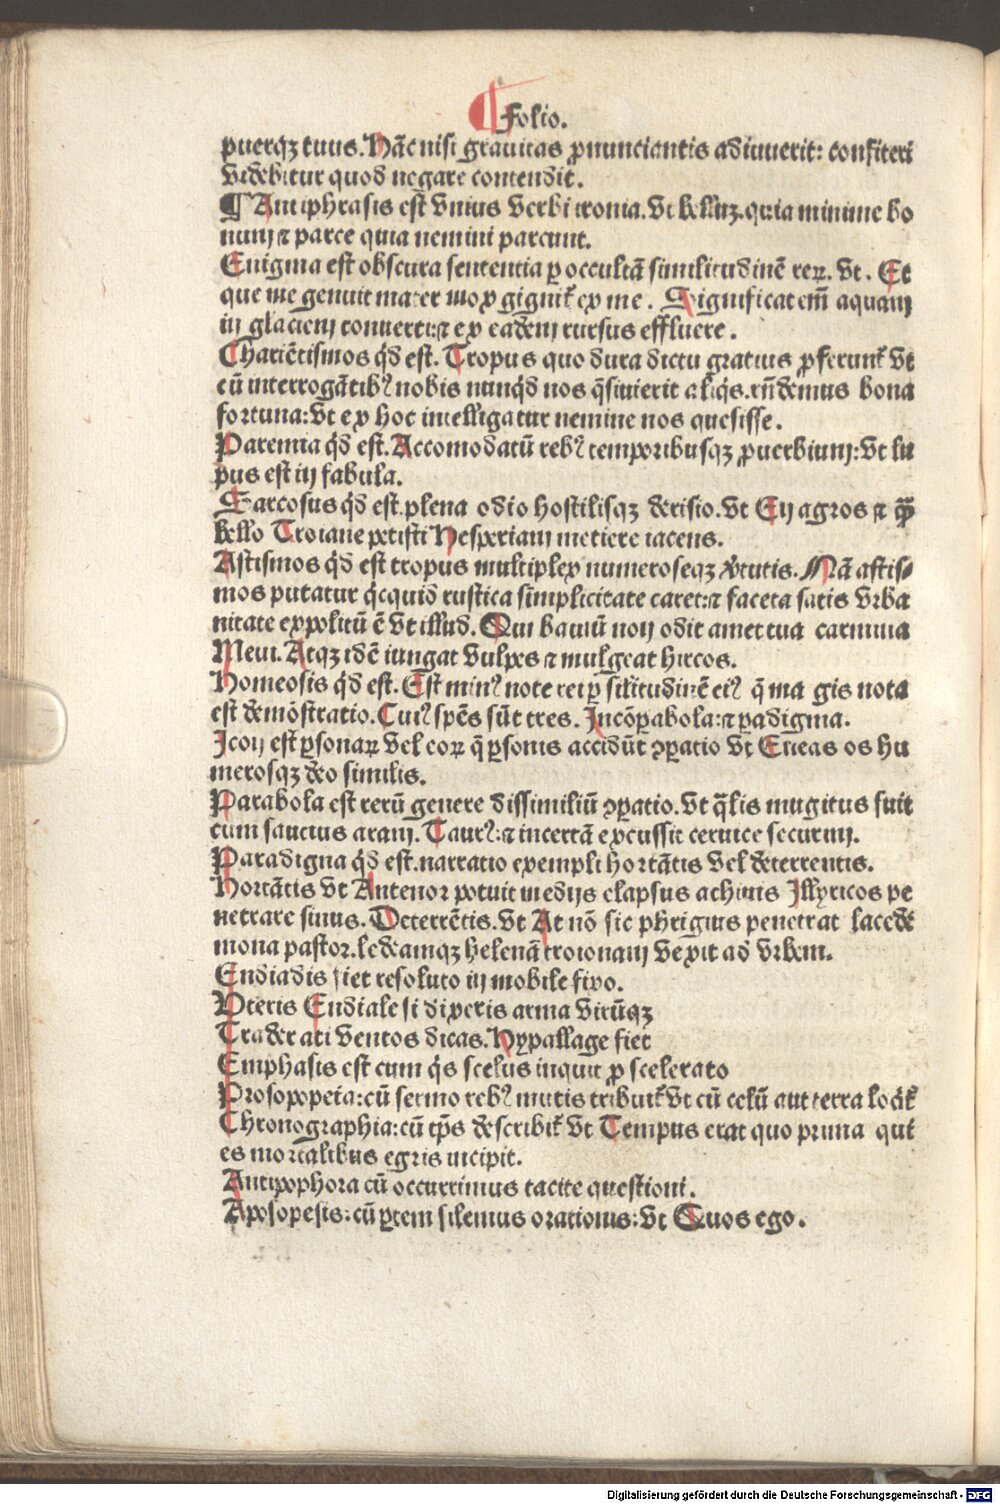 ¶ Folio.
puerqꝫ tuus. Nā̄c nisi grauitas ꝓnunciantis adiuuerit: confiteri
videbitur quod negare contendit.
¶ Antiphrasis est vnius verbi ironia. vt bellūꝫ. quia minime bo
num ⁊ parce quia nemini parcunt.
Enigma est obscura sententia ꝑ occultā similitudinē reꝝ. vt. Et
que me genuit mater mox gignit̄ ex me. Significat em̄ aquam
in glaciem conuerti: ⁊ ex eadem rursus effluere.
Chariētismos qd̓ est. Tropus quo dura dictu gratius ꝓferunt̄ vt
cū interrogātibꝰ nobis nunqd̓ nos q̄siuerit aliq̓s. rn̄demus bona
fortuna: vt ex hoc intelligatur nemine nos quesisse.
Paremia qd̓ est. Accomodatū rebꝰ temporibusqꝫ ꝓuerbium: vt lu
pus est in fabula.
Sarcosus qd̓ est plena odio hostilisqꝫ derisio. vt En agros ⁊ quā
bello Troiane petisti Hesperiam metiere iacens.
Astismos qd̓ est tropus multiplex numeroseqꝫ v̓tutis. Nā astis⸗
mos putatur q̓cquid rustica simplicitate caret: ⁊ faceta satis vrba
nitate expolitū ē vt illud. Qui bauiū non odit amet tua carmina
Meui. Atqꝫ idē iungat vulpes ⁊ mulgeat hircos.
Homeosis qd̓ est. Est minꝰ note rei ꝑ silitudinē eiꝰ q̄ ma gis nota
est demōstratio. Cuiꝰ spēs sūt tres. Jncōꝑabola: ⁊ ꝑadigma.
Jcon est ꝑsonaꝝ vel eoꝝ q̄ ꝑsonis accidūt ꝯꝑatio vt Eneas os hu
merosqꝫ deo similis.
Parabola est rerū genere dissimiliū ꝯꝑatio. vt q̄lis mugitus fuit
cum saucius aram. Taurꝰ: ⁊ incertā excussit ceruice securim.
Paradigna qd̓ est. narratio exempli hortātis vel deterrentis.
Hortātis vt Antenor potuit medijs elapsus achiuis Jllyricos pe
netrare sinus. Deterrētis. vt At nō sic phrigius penetrat lacede
mona pastor. ledeamqꝫ helenā troionam vexit ad vrbem.
Endiadis fiet resoluto in mobile fixo.
Vteris Endiale si dixeris arma virūqꝫ
Trader ati ventos dicas. Hypallage fiet
Emphasis est cum q̓s scelus inquit ꝓ scelerato
Prosopopeia: cū sermo rebꝰ mutis tribuit̄ vt cū celū aut terra loq̓t̄
Chronographia: cū tp̄s describit̄ vt Tempus erat quo prima qui
es mortalibus egris incipit.
Antipophora cū occurrimus tacite questioni.
Aposopesis: cū ꝑtem silemus orationis: vt Quos ego.
Digitalisierung gefördert durch die Deutsche Forschungsgemeinschaft - DFG